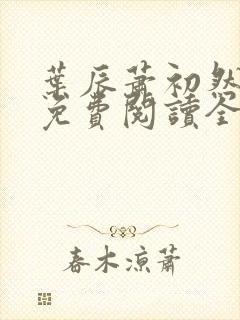 葉辰蕭初然
免費閱讀全
春木涼蕭